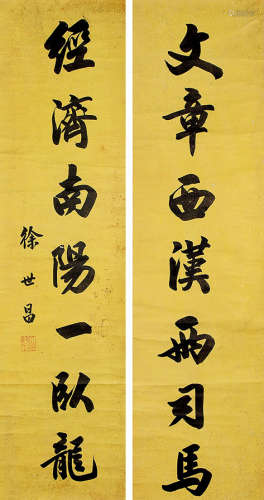 文章西漢兩司馬
經濟南陽一臥龍
徐世昌